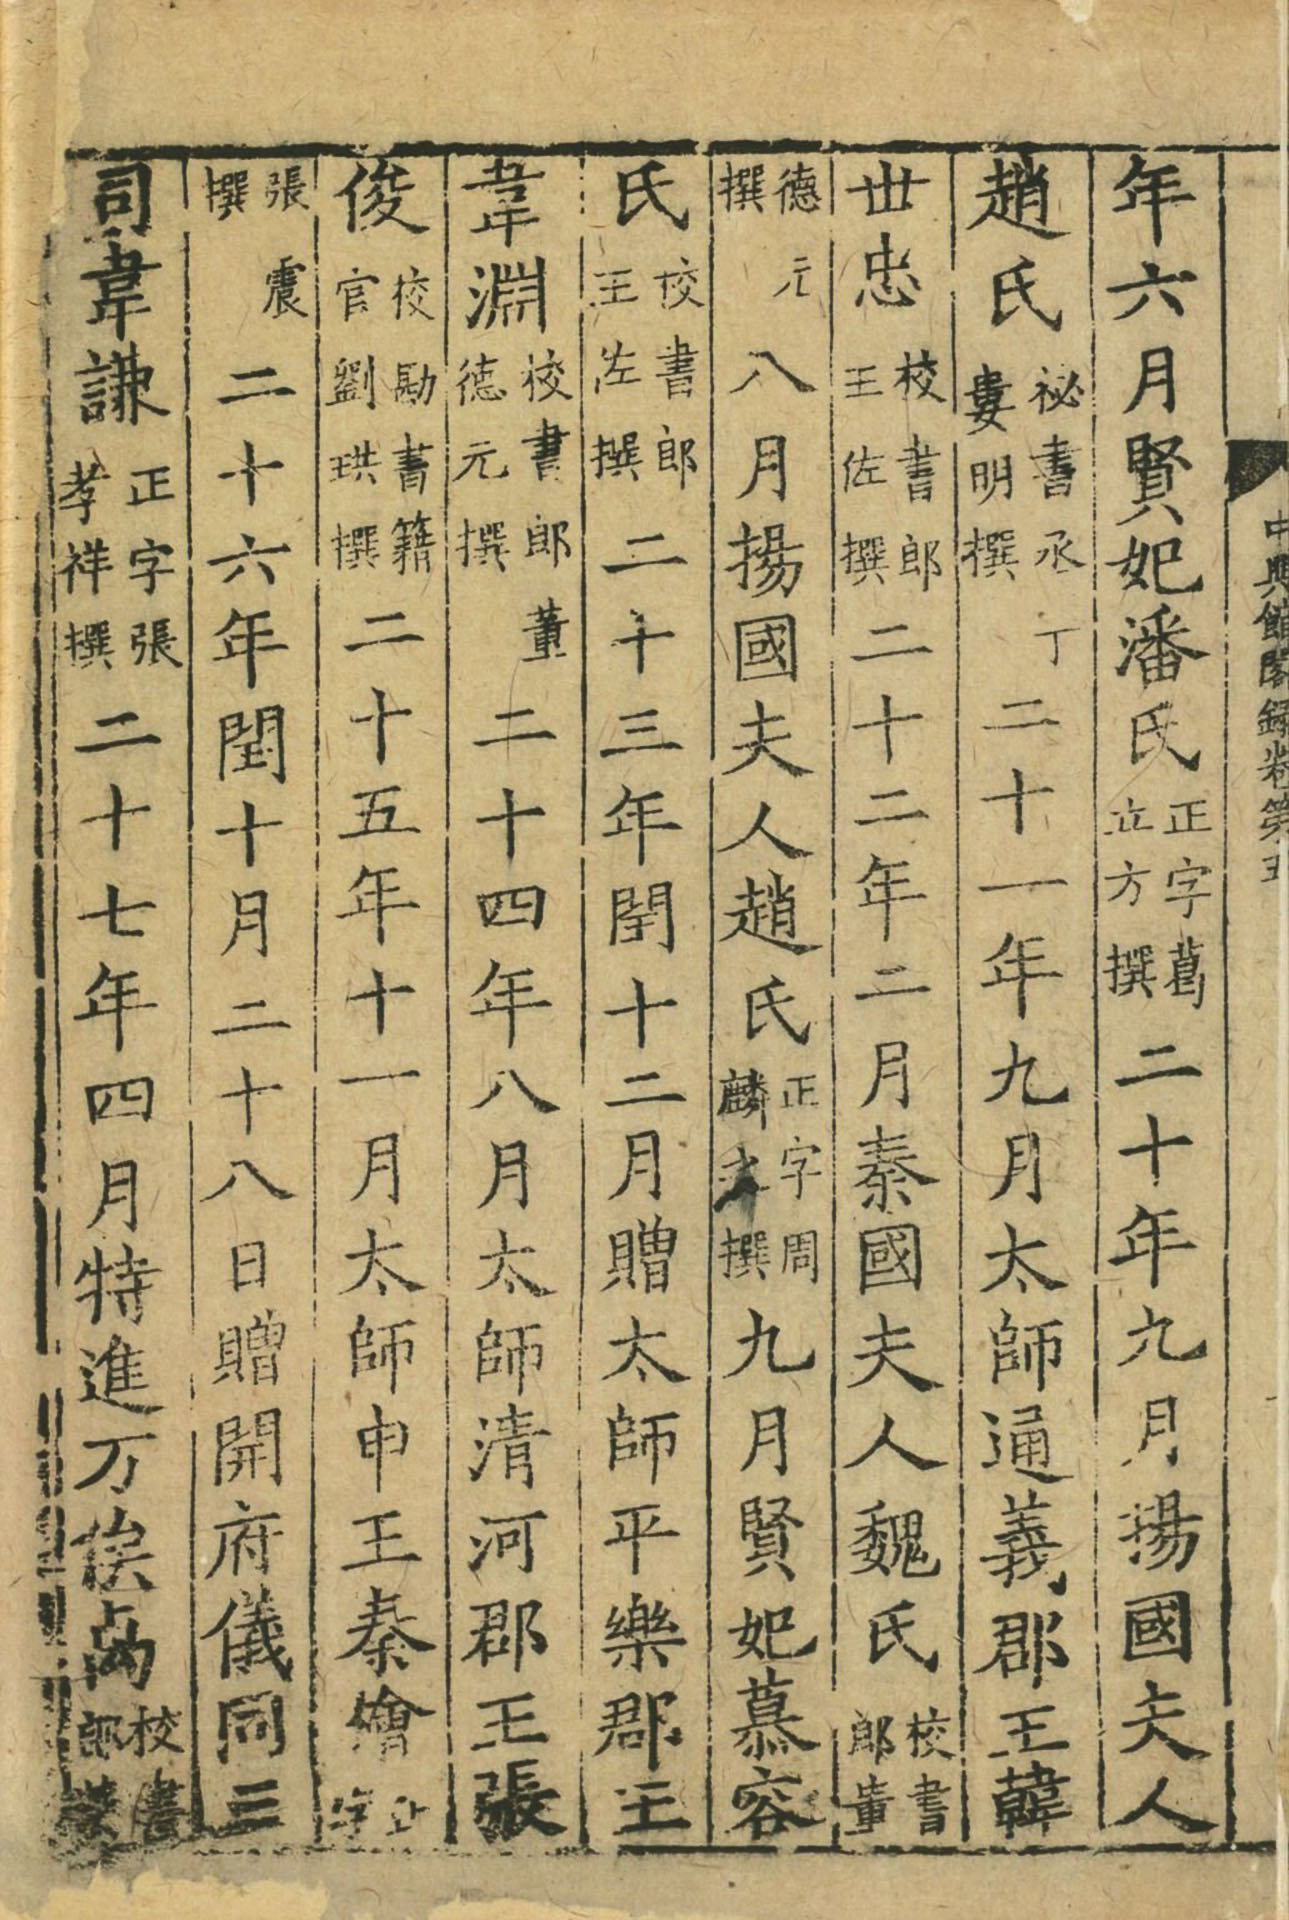 中興館閣録卷第五
年六月賢妃潘氏正字葛立方撰二十年九月揚國夫人
趙氏祕書丞丁婁明撰二十一年九月太師通義郡王韓
世忠校書郎王佐撰二十二年二月秦國夫人魏氏校書郎董
德元撰八月揚國夫人趙氏正字周麟之撰九月賢妃慕容
氏校書郎王左撰二十三年閏十二月贈太師平樂郡王
韋淵校書郎董德元撰二十四年八月太師清河郡王張
俊校勘書籍官劉珙撰二十五年十一月太師申王秦檜正字
張震撰二十六年閏十月二十八日贈開府儀同三
司韋謙正字張孝祥撰二十七年四月特進万俟卨校書郎